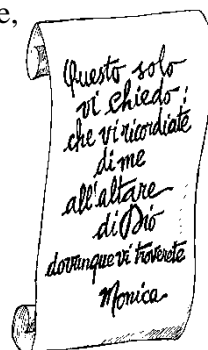 e,
Questo solo
vi chiedo:
che vi ricordiate
di me
all'altare
di Dio
dovunque vi troverete
Monica